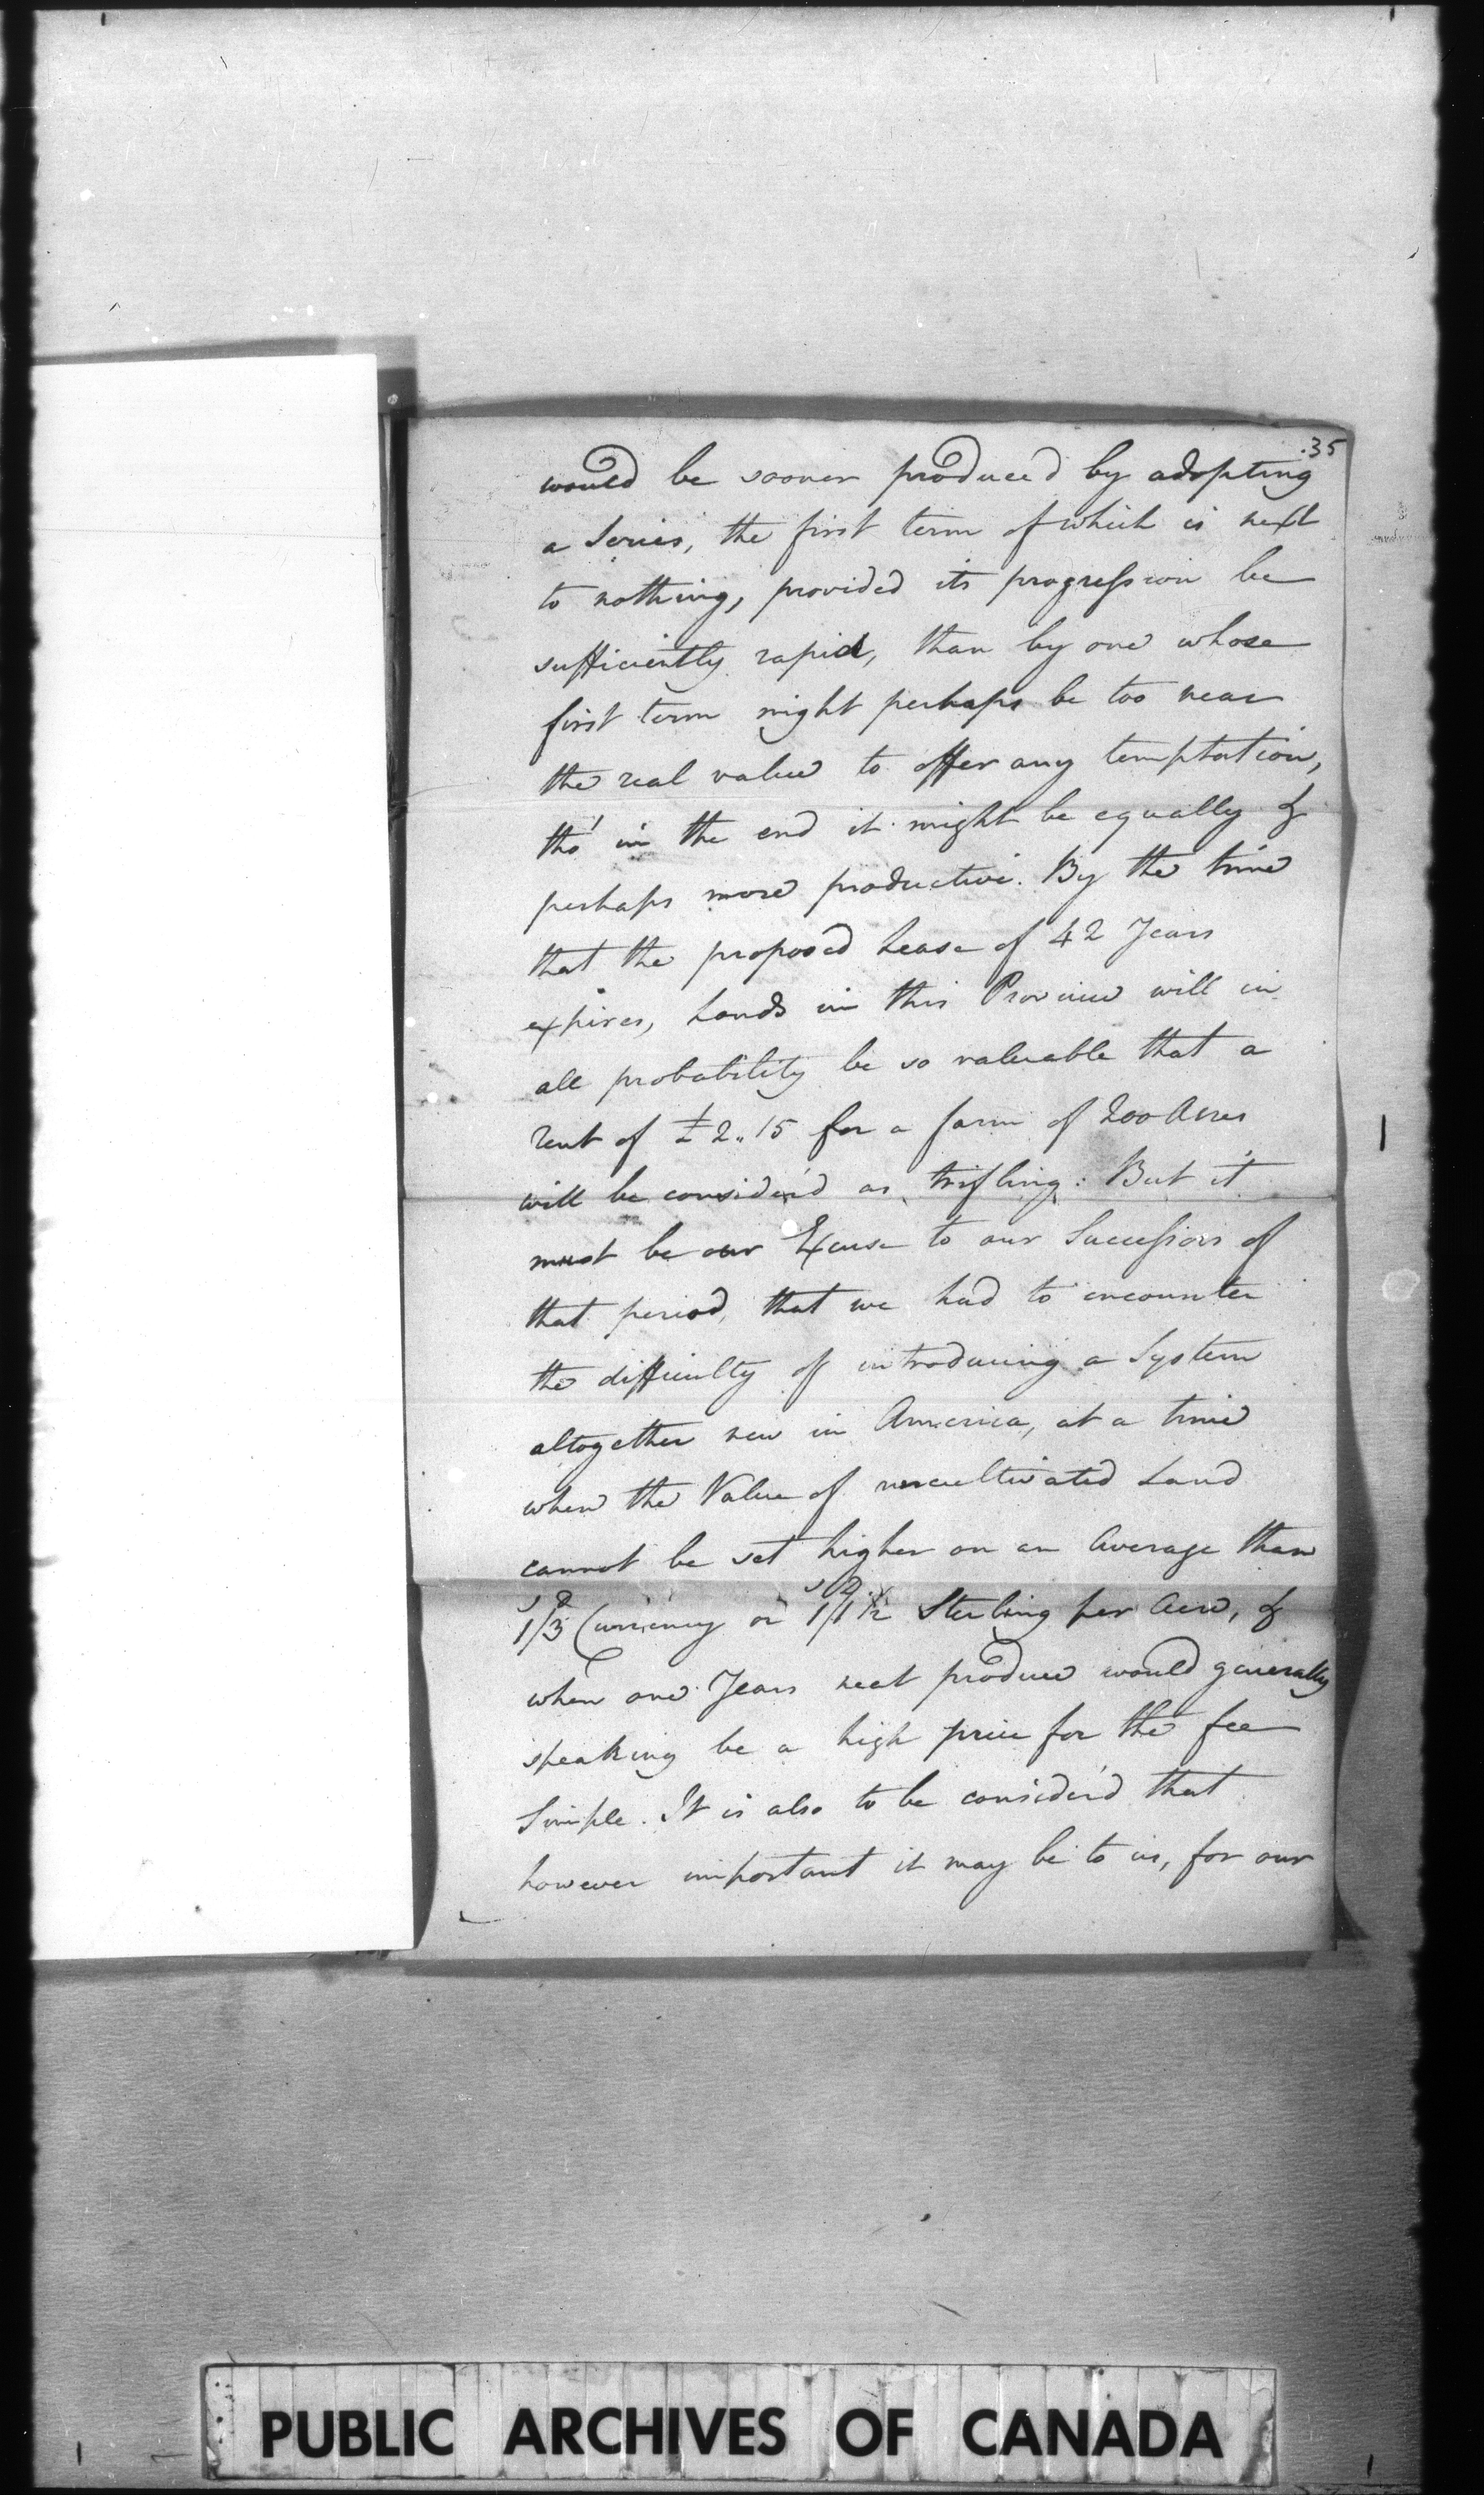 .35
would be sooner produced by adopting
a Series, the first term of which is next
to nothing, provided its progression be
sufficiently rapid, than by one whose
first term might perhaps be too near
the real value to offer any temptation,
tho' in the end it might be equally &
perhaps more productive. By the time
that the proposed Lease of 42 Years
expires, Lands in this Province will in
all probability be so valuable that a
Rent of £2..15 for a farm of 200 Acres
will be consider'd as trifling: But it
must be our Excuse to our Successors of
that period, that we had to encounter
the difficulty of introducing a System
altogether new in America, at a time
when the Value of uncultivated Land
cannot be set higher on an Average than
1/3 Currency or 1/1½ Sterling per Acre, &
when one Years neet produce would generally
speaking be a high price for the fee
Simple. It is also to be consider'd that
however important it may be to us, for our
PUBLIC ARCHIVES OF CANADA